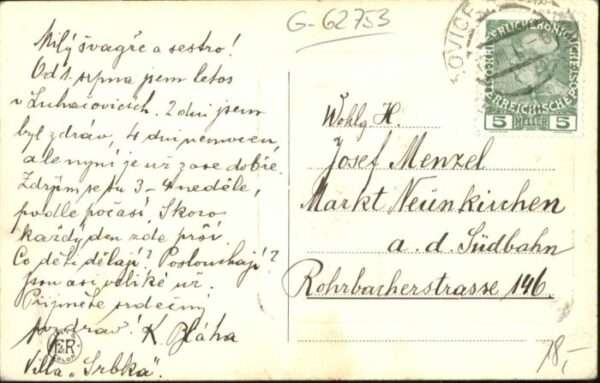 G-62753
Milý švagře a sestro!
Od 1. srpna jsem letos
v Luhačovicích. 2 dni jsem
byl zdráv, 4 dni nemocen,
ale nyní je už zase dobře.
Zdržím se tu 3-4 neděle,
podle počasí. Skoro
každý den zde prší.
Co děti dělají? Poslouchají?
Jsou asi veliké už.
Přijměte srdečný
pozdrav! K. Bláha
Villa „Srbka“.
OVICE
5 HELLER 5
Wohlg. H.
Josef Menzel
Markt Neunkirchen
a. d. Südbahn
Rohrbacherstrasse 146.
18,-